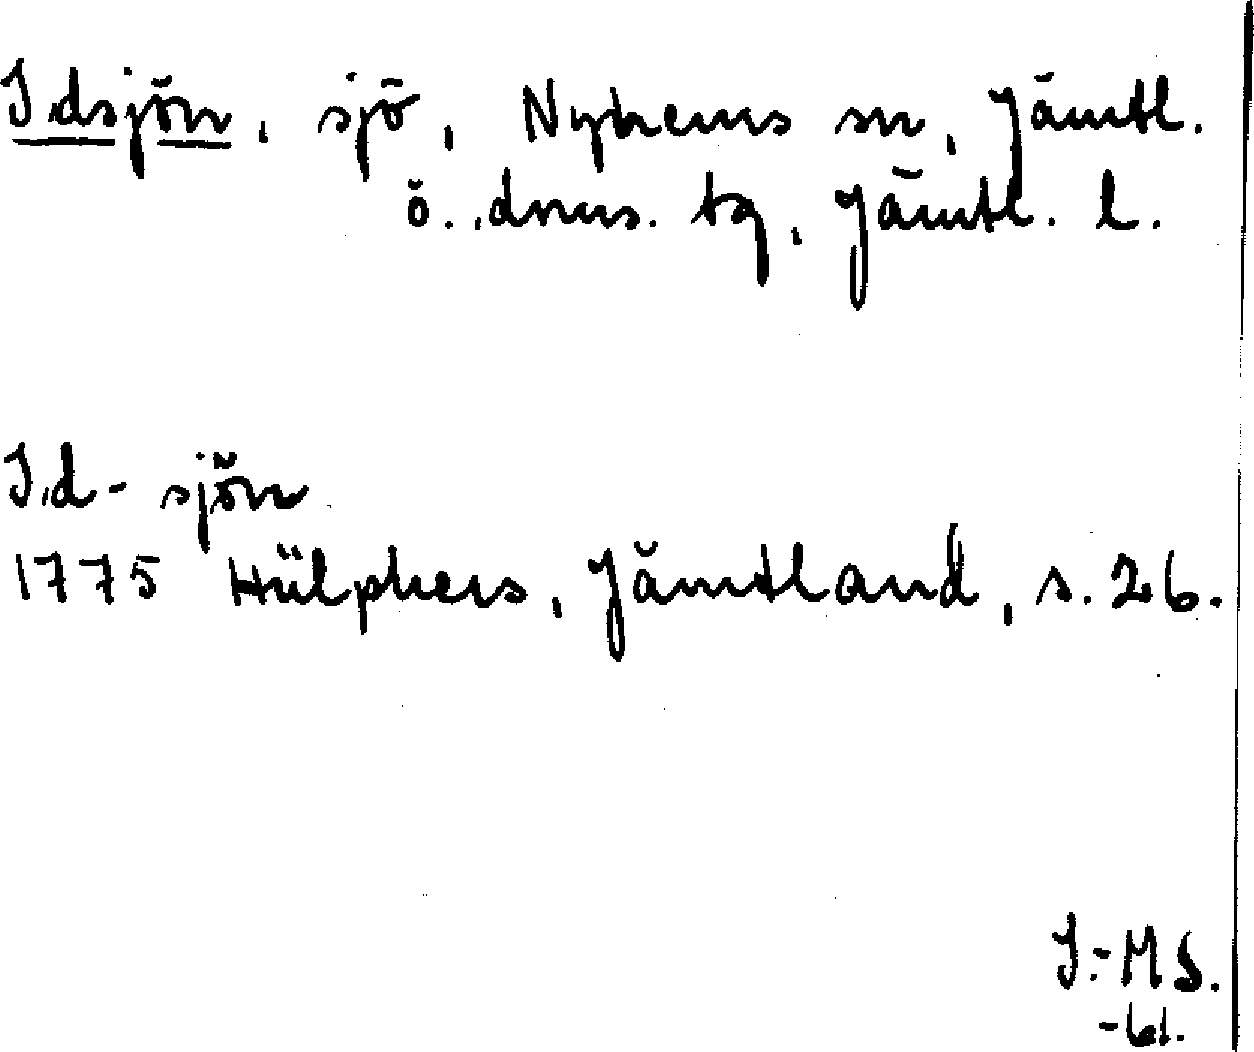 Idsjön, sjö, Nyhems sn, Jämtl.
ö. dms. tg, Jämtl. l.
Id-sjön
1775 Hülphers, Jämtland, s. 26.
J.-M S.
-61.